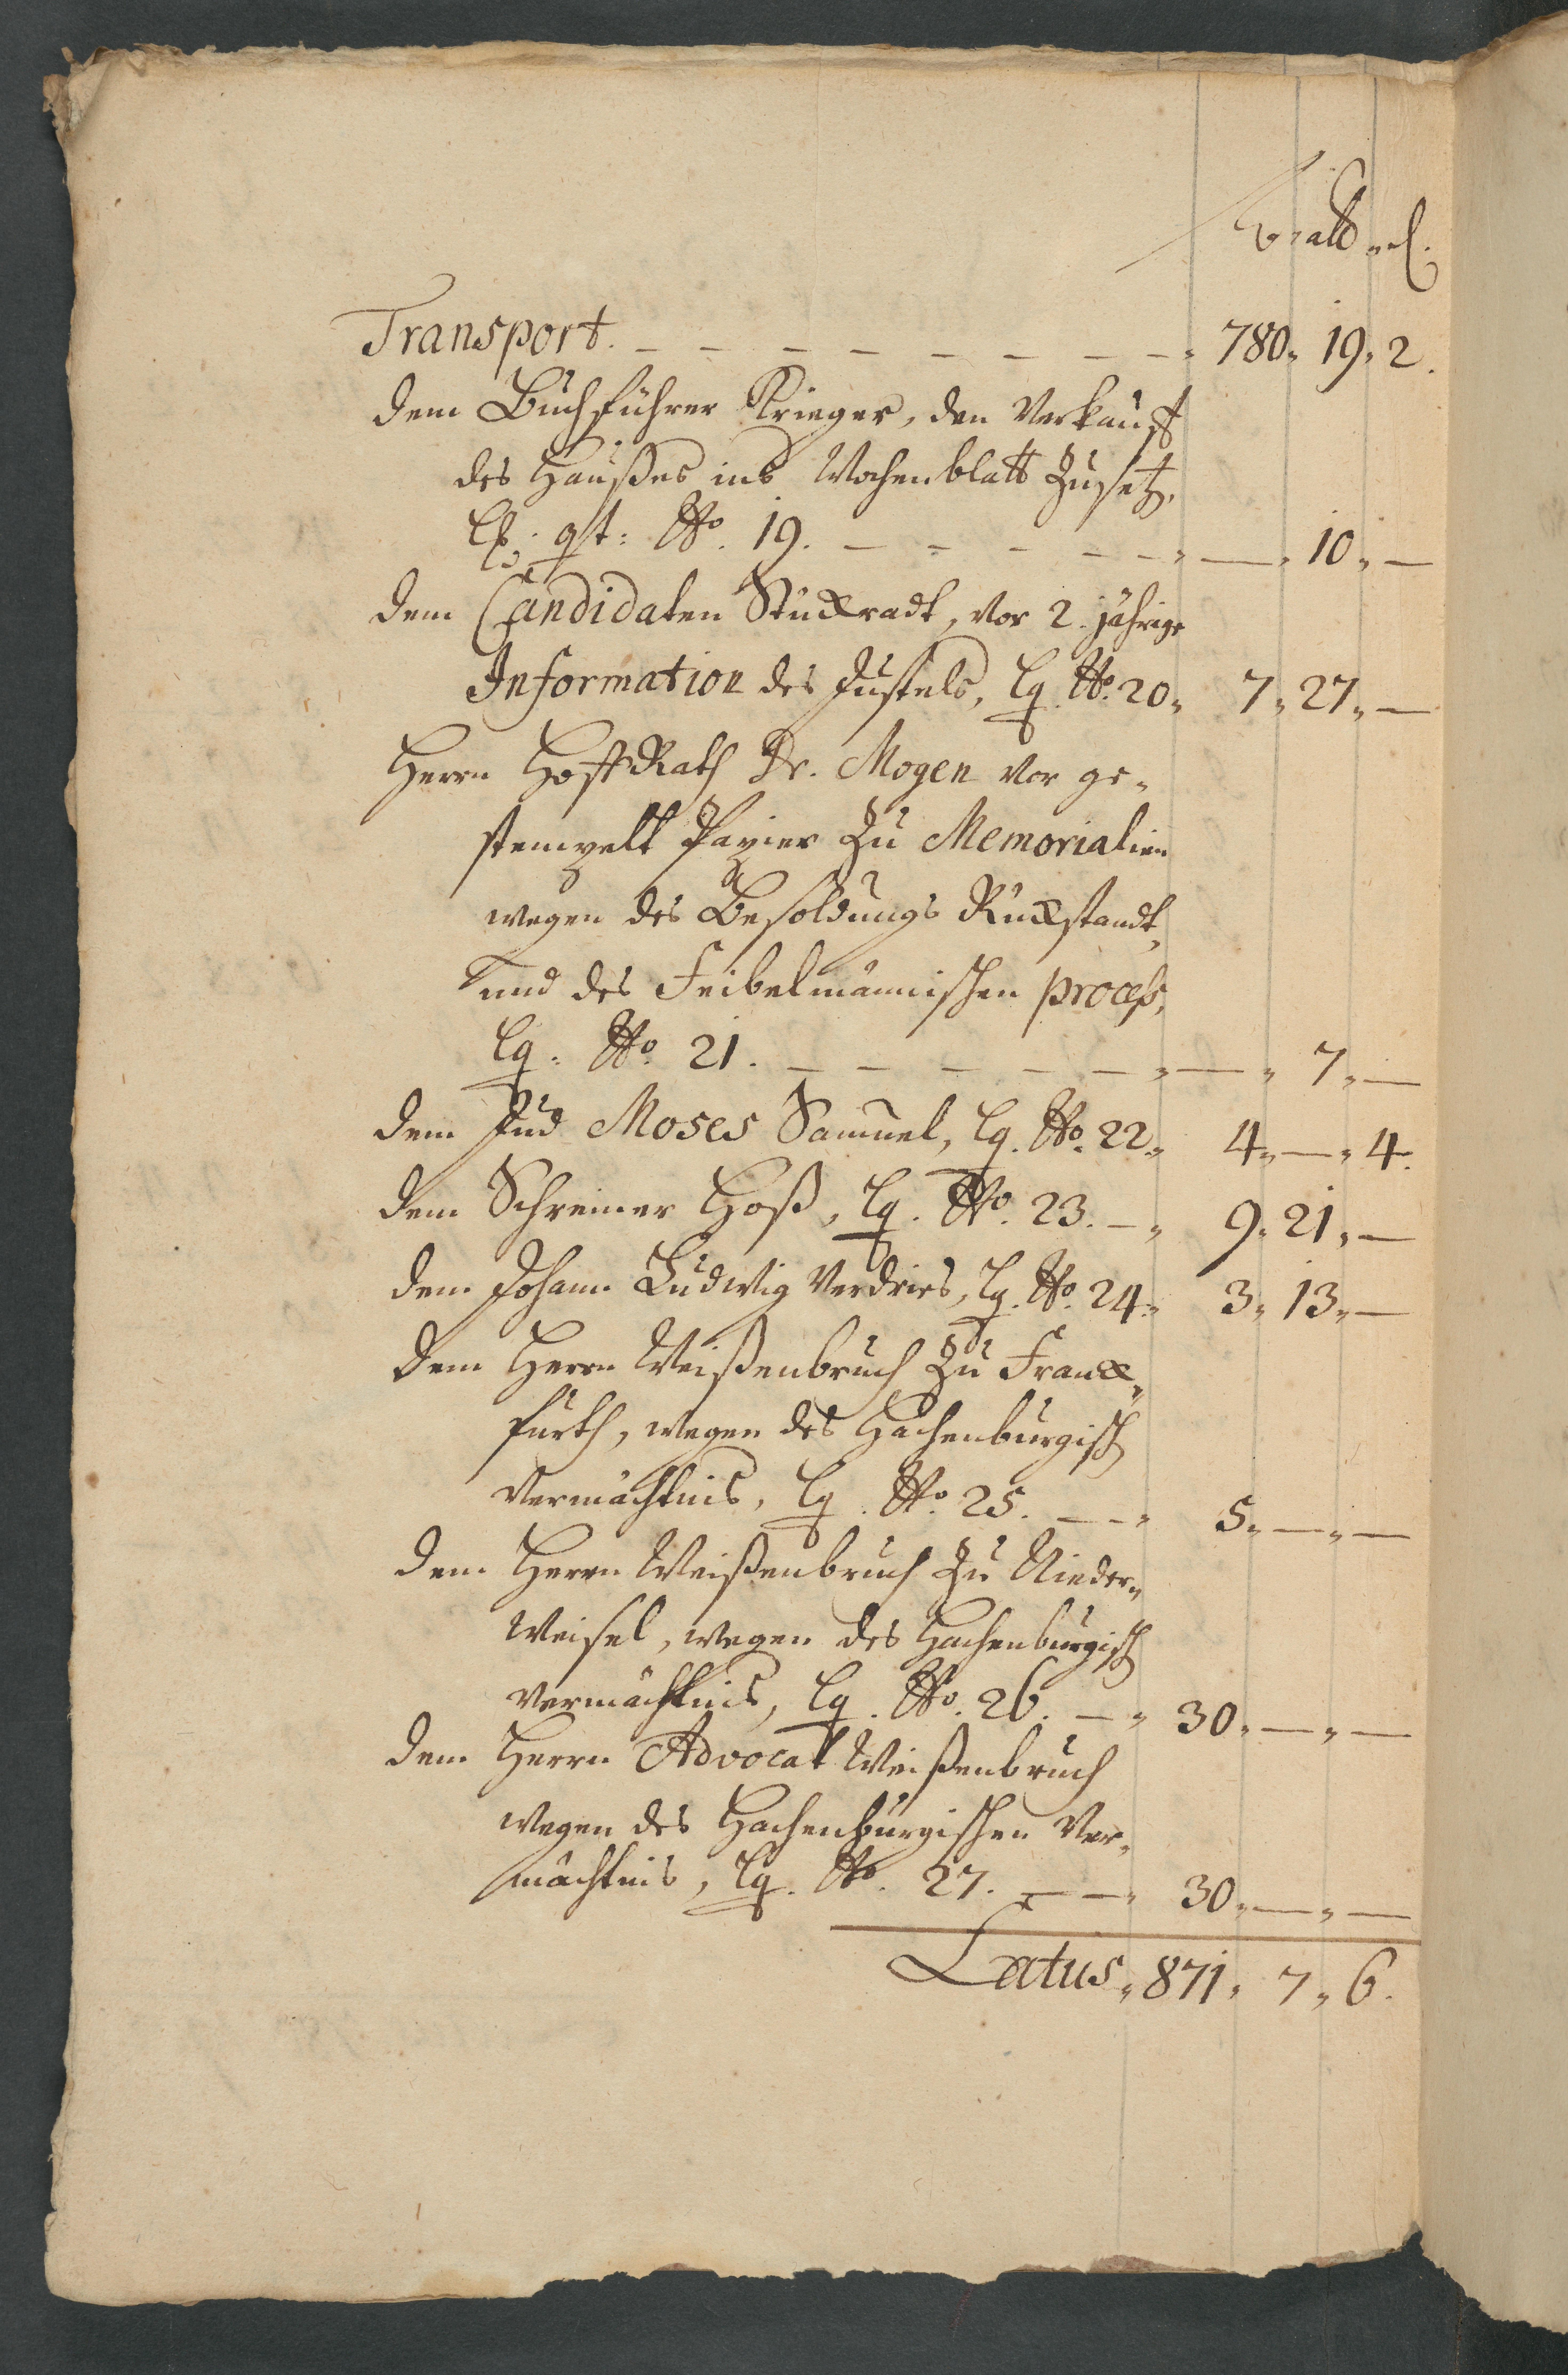 alb. d.
Transport. — — — — — — — — 780. 19. 2.
dem Buchführer Krieger, den Verkauff
des Haußes ins Wochenblatt zusetz.
qt: No. 19. — — — — — — 10. —
dem Candidaten Stückradt, vor 2. jährige
Information des Justels, lq. No. 20. 7. 27. —
Herrn HoffRath Dr. Mogen vor ge-
stempelt Papier zu Memorialien
wegen des Besoldungs Rückstandt,
und des Feibelmännischen process,
lq. No. 21. — — — — — — 7. —
dem Jud Moses Samuel, lq. No. 22. 4. — . 4.
dem Schreiner Hoß, lq. No. 23. — 9. 21. —
dem Johann Ludwig Verdries, lq. No. 24. 3. 13. —
dem Herrn Weißenbruch zu Franck-
furth, wegen des Hachenburgisch
Vermächtnis, lq. No. 25. — — 5. — . —
dem Herrn Weißenbruch zu Nieder-
Weisel, wegen des Hachenburgisch
Vermächtnis, lq. No. 26. — 30. — . —
dem Herrn Advocat Weißenbruch
wegen des Hachenburgischen Ver-
mächtnis, lq. No. 27. — — 30. — . —
Latus. 871. 7. 6.